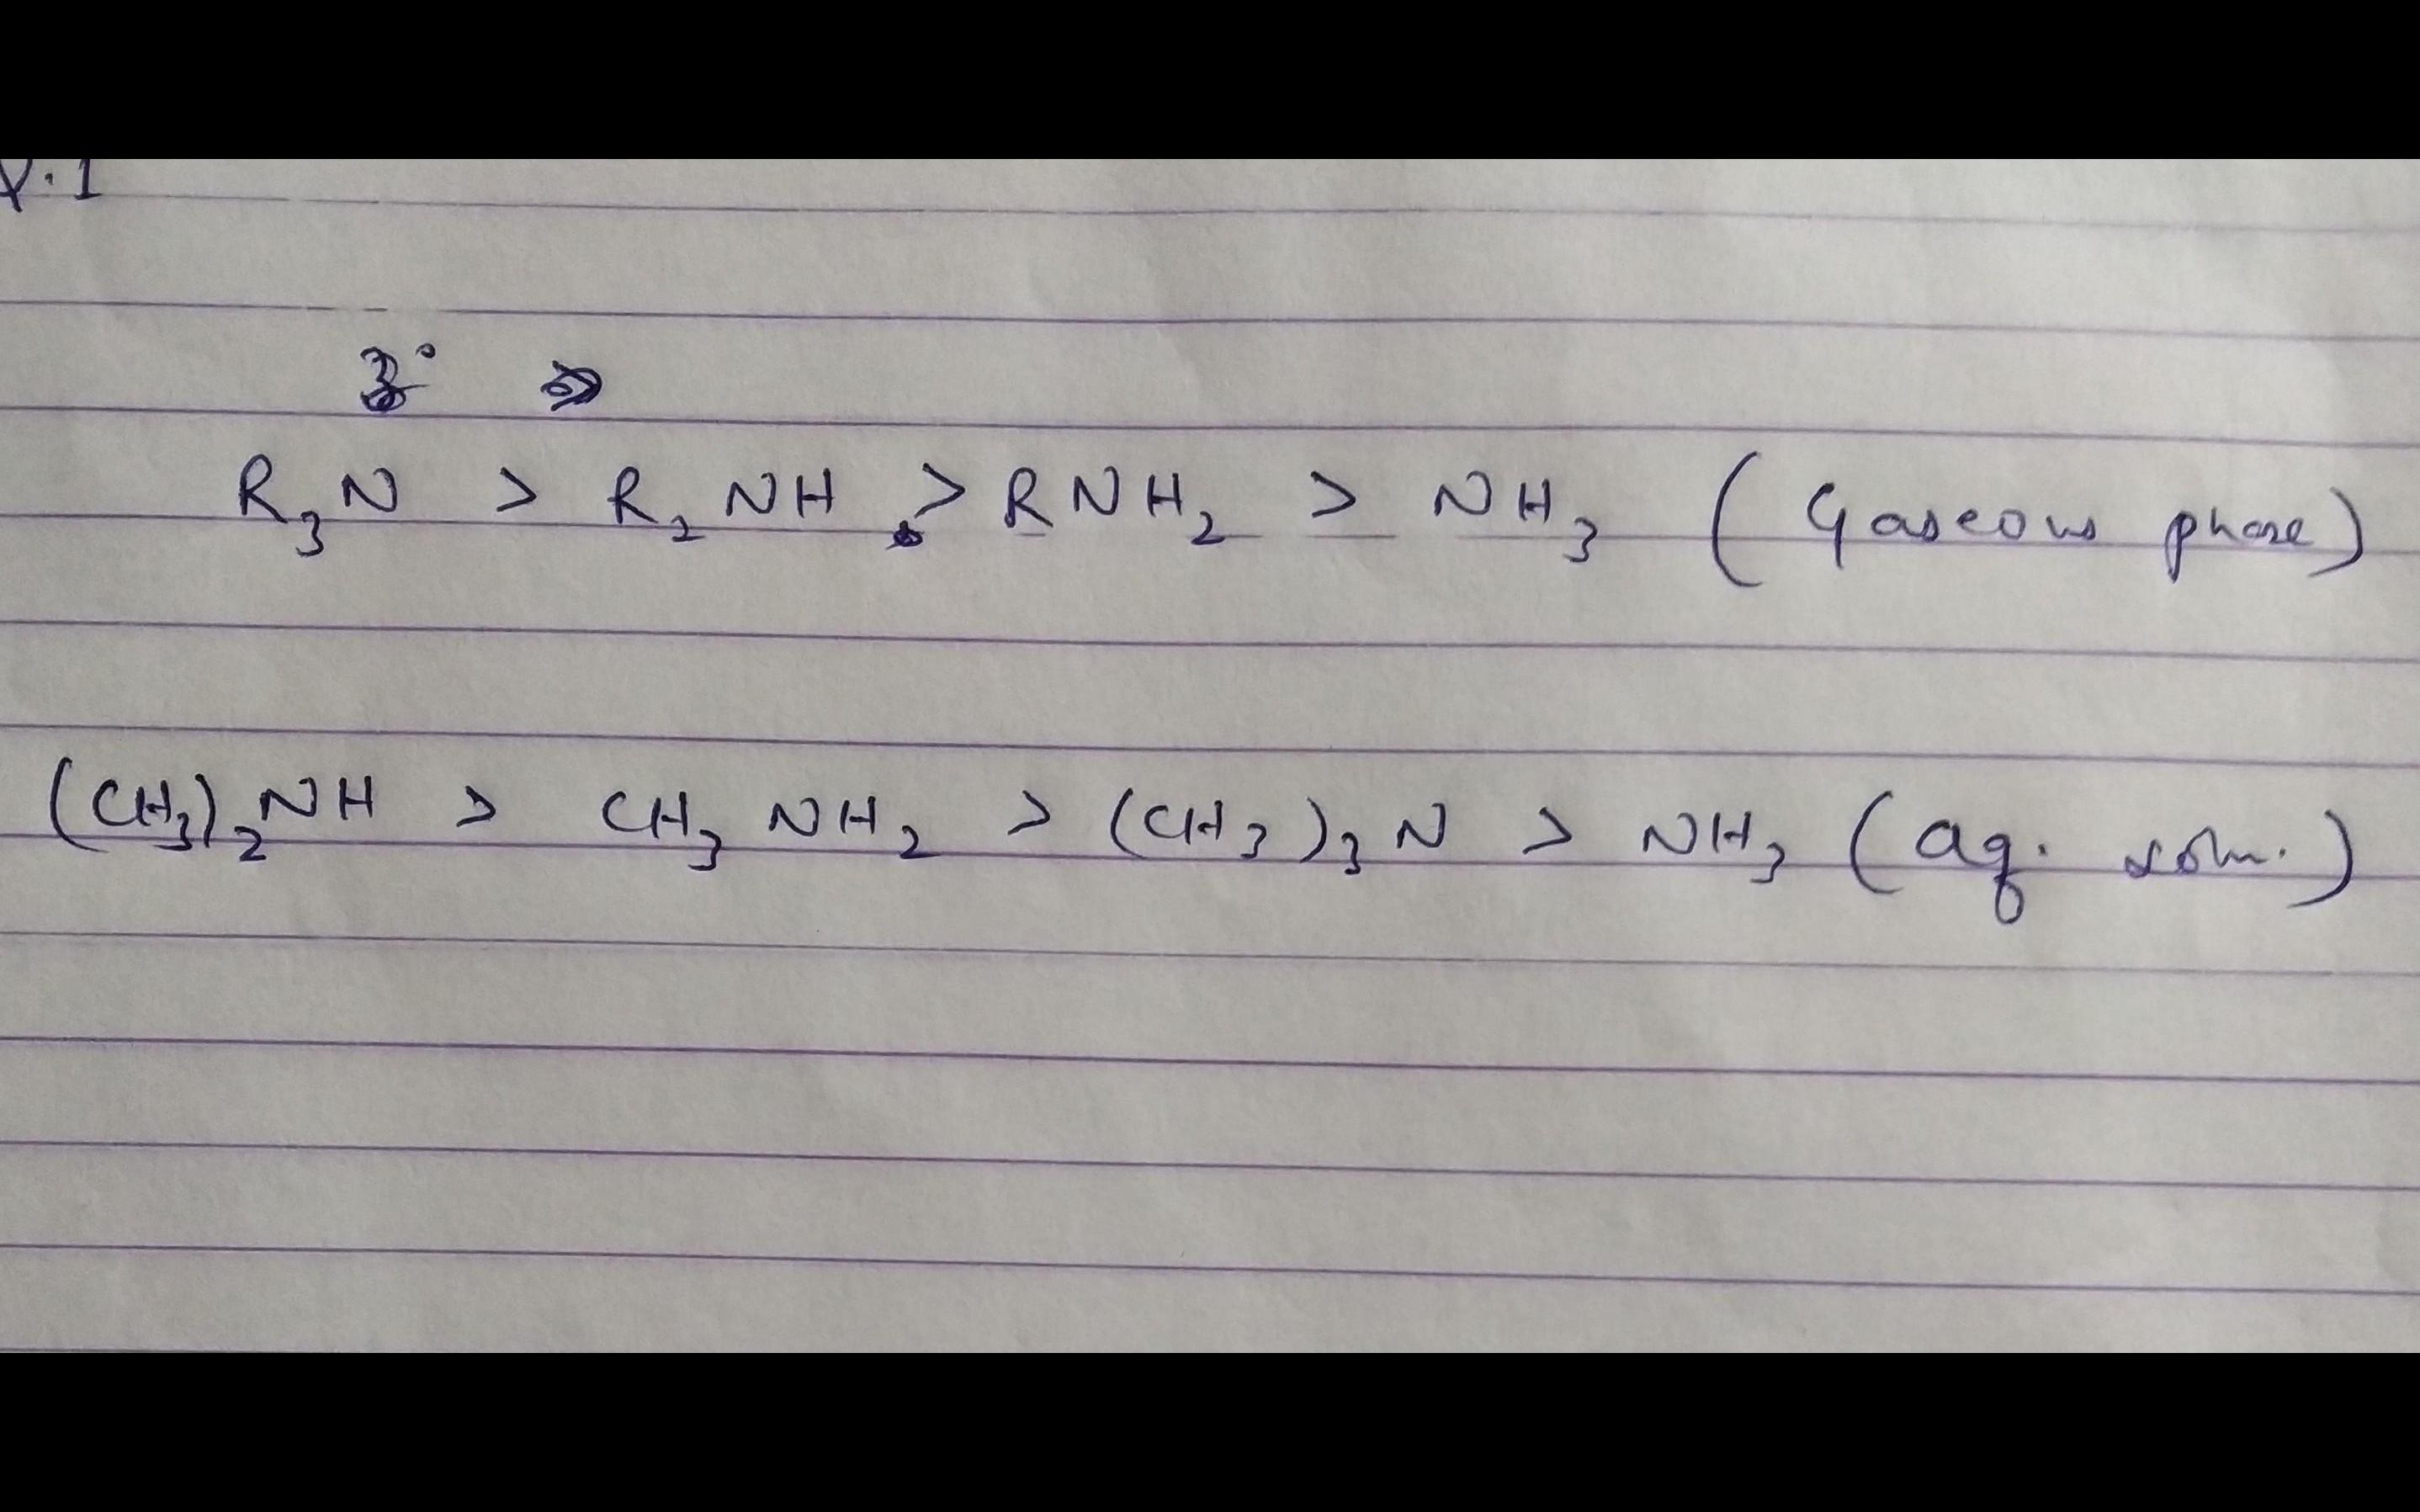 3°
R₃N > R₂NH > RNH₂ > NH₃ (Gaseous phase)
(CH₃)₂NH > CH₃NH₂ > (CH₃)₃N > NH₃ (aq. soln.)